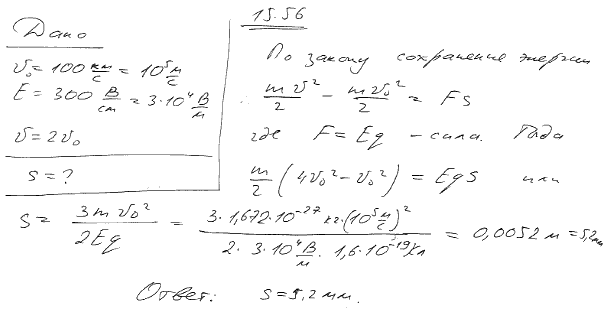 15.56
Дано
v₀ = 100 км/с = 10⁵ м/с
E = 300 В/см = 3·10⁴ В/м
v = 2v₀
s = ?
По закону сохранения энергии
mv²/2 − mv₀²/2 = Fs
где F = Eq – сила. Тогда
m/2 (4v₀² − v₀²) = Eqs или
s = 3mv₀²/2Eq = 3·1,672·10⁻²⁷ кг·(10⁵ м/с)² / 2·3·10⁴ В/м · 1,6·10⁻¹⁹ Кл = 0,0052 м = 5,2 мм
Ответ: s = 5,2 мм.